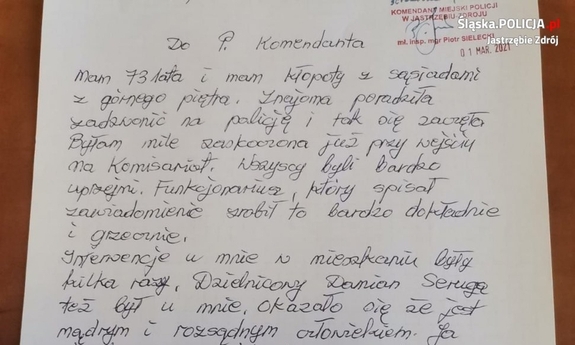 Śląska.POLICJA.pl
Jastrzębie Zdrój
KOMENDANT MIEJSKI POLICJI
W JASTRZĘBIU-ZDROJU
mł. insp. mgr Piotr SIELECKI
01 MAR. 2021
Do P. Komendanta
Mam 73 lata i mam kłopoty z sąsiadami
z górnego piętra. Znajoma poradziła
zadzwonić na policję i tak się zaczęło.
Byłam mile zaskoczona już przy wejściu
na Komisariat. Wszyscy byli bardzo
uprzejmi. Funkcjonariusz, który spisał
zawiadomienie zrobił to bardzo dokładnie
i grzecznie.
Interwencje u mnie w mieszkaniu były
kilka razy. Dzielnicowy Damian Seruga
też był u mnie. Okazało się że jest
mądrym i rozsądnym człowiekiem. Ja